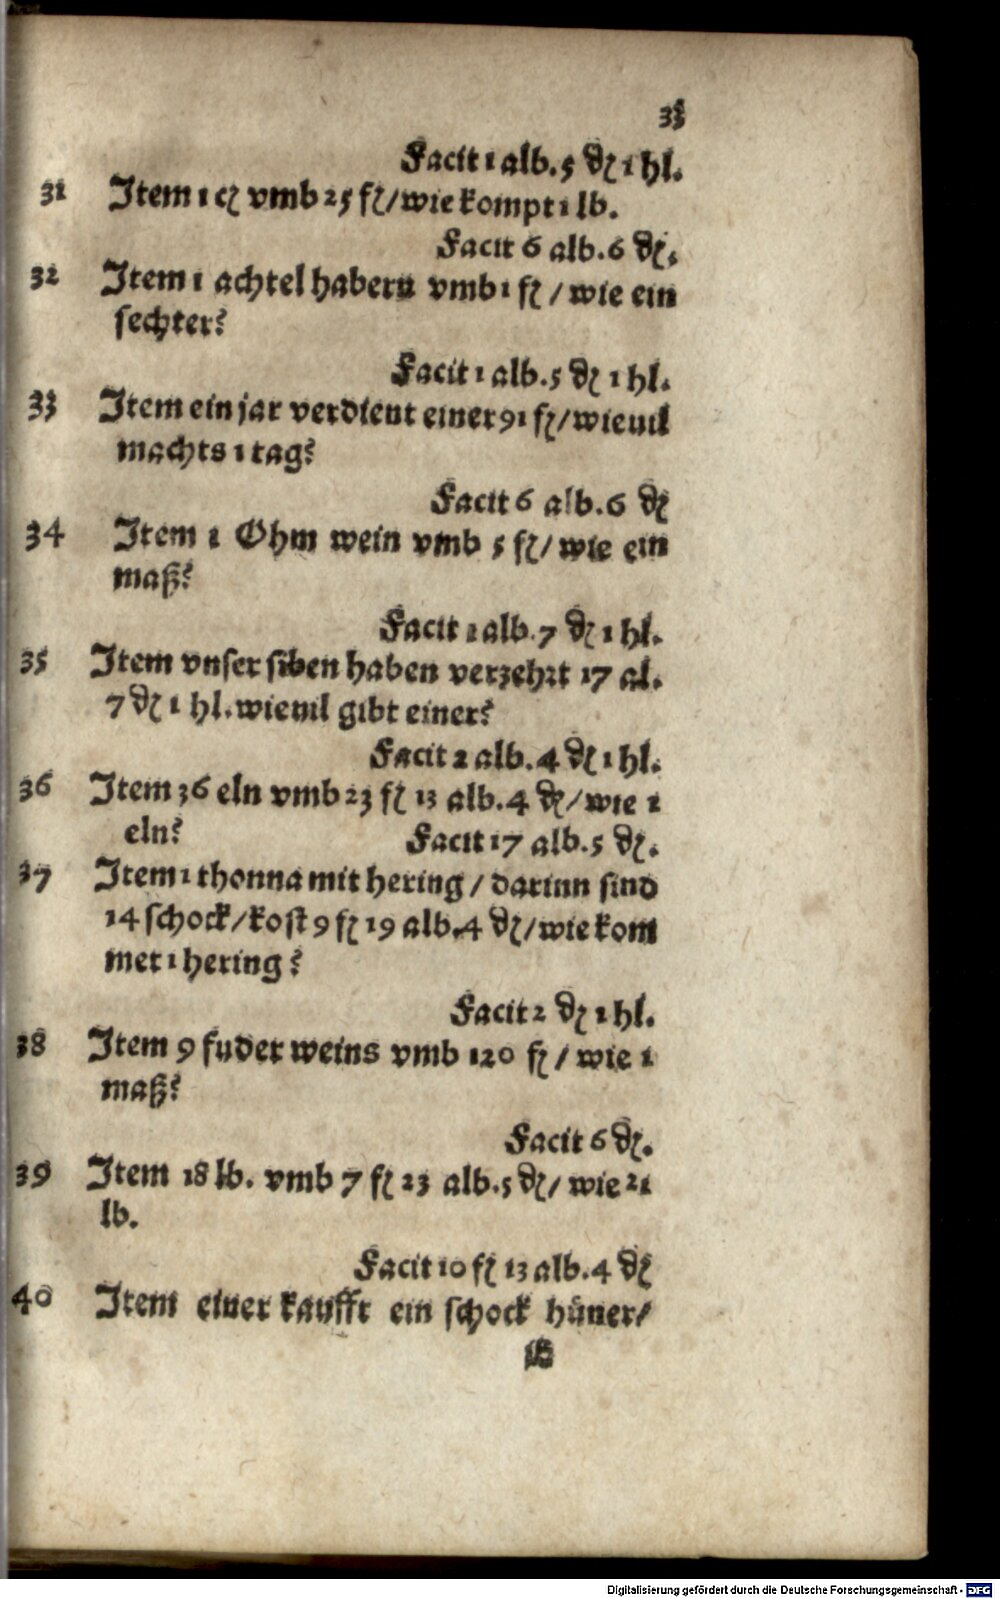 33
Facit 1 alb. 5 ₰ 1 hl.
31 Item 1 cz vmb 25 fl/ wie kompt 1 lb.
Facit 6 alb. 6 ₰.
32 Item 1 achtel habern vmb 1 fl / wie ein
sechter?
Facit 1 alb. 5 ₰ 1 hl.
33 Item ein jar verdient einer 91 fl/ wieuil
machts 1 tag?
Facit 6 alb. 6 ₰
34 Item 1 Ohm wein vmb 5 fl/ wie ein
maß?
Facit 1 alb. 7 ₰ 1 hl.
35 Item vnser siben haben verzehrt 17 al.
7 ₰ 1 hl. wieuil gibt einer?
Facit 2 alb. 4 ₰ 1 hl.
36 Item 36 eln vmb 23 fl 13 alb. 4 ₰/ wie 1
eln? Facit 17 alb. 5 ₰.
37 Item 1 thonna mit hering / darinn sind
14 schock/ kost 9 fl 19 alb. 4 ₰/ wie kom
met 1 hering?
Facit 2 ₰ 1 hl.
38 Item 9 fuder weins vmb 120 fl / wie 1
maß?
Facit 6 ₰.
39 Item 18 lb. vmb 7 fl 23 alb. 5 ₰/ wie 21
lb.
Facit 10 fl 13 alb. 4 ₰
40 Item einer kaufft ein schock hüner/
Digitalisierung gefördert durch die Deutsche Forschungsgemeinschaft - DFG